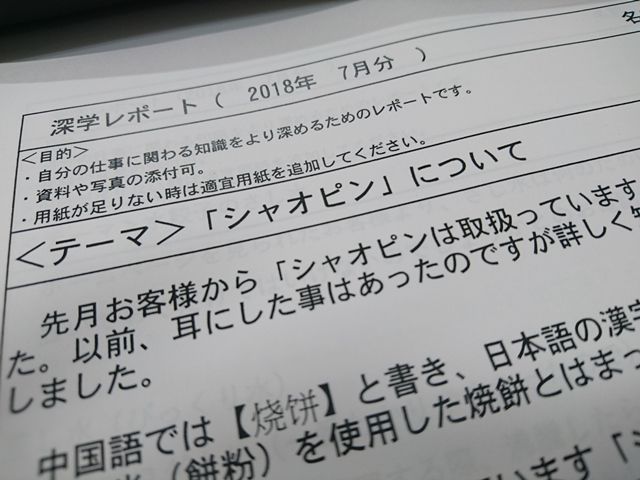 名
深学レポート（ 2018年 7月分 ）
＜目的＞
・自分の仕事に関わる知識をより深めるためのレポートです。
・資料や写真の添付可。
・用紙が足りない時は適宜用紙を追加してください。
＜テーマ＞「シャオピン」について
先月お客様から「シャオピンは取扱っています
た。以前、耳にした事はあったのですが詳しく
しました。
中国語では【烧饼】と書き、日本語の漢字
（餅粉）を使用した焼餅とはまっ
います「シ